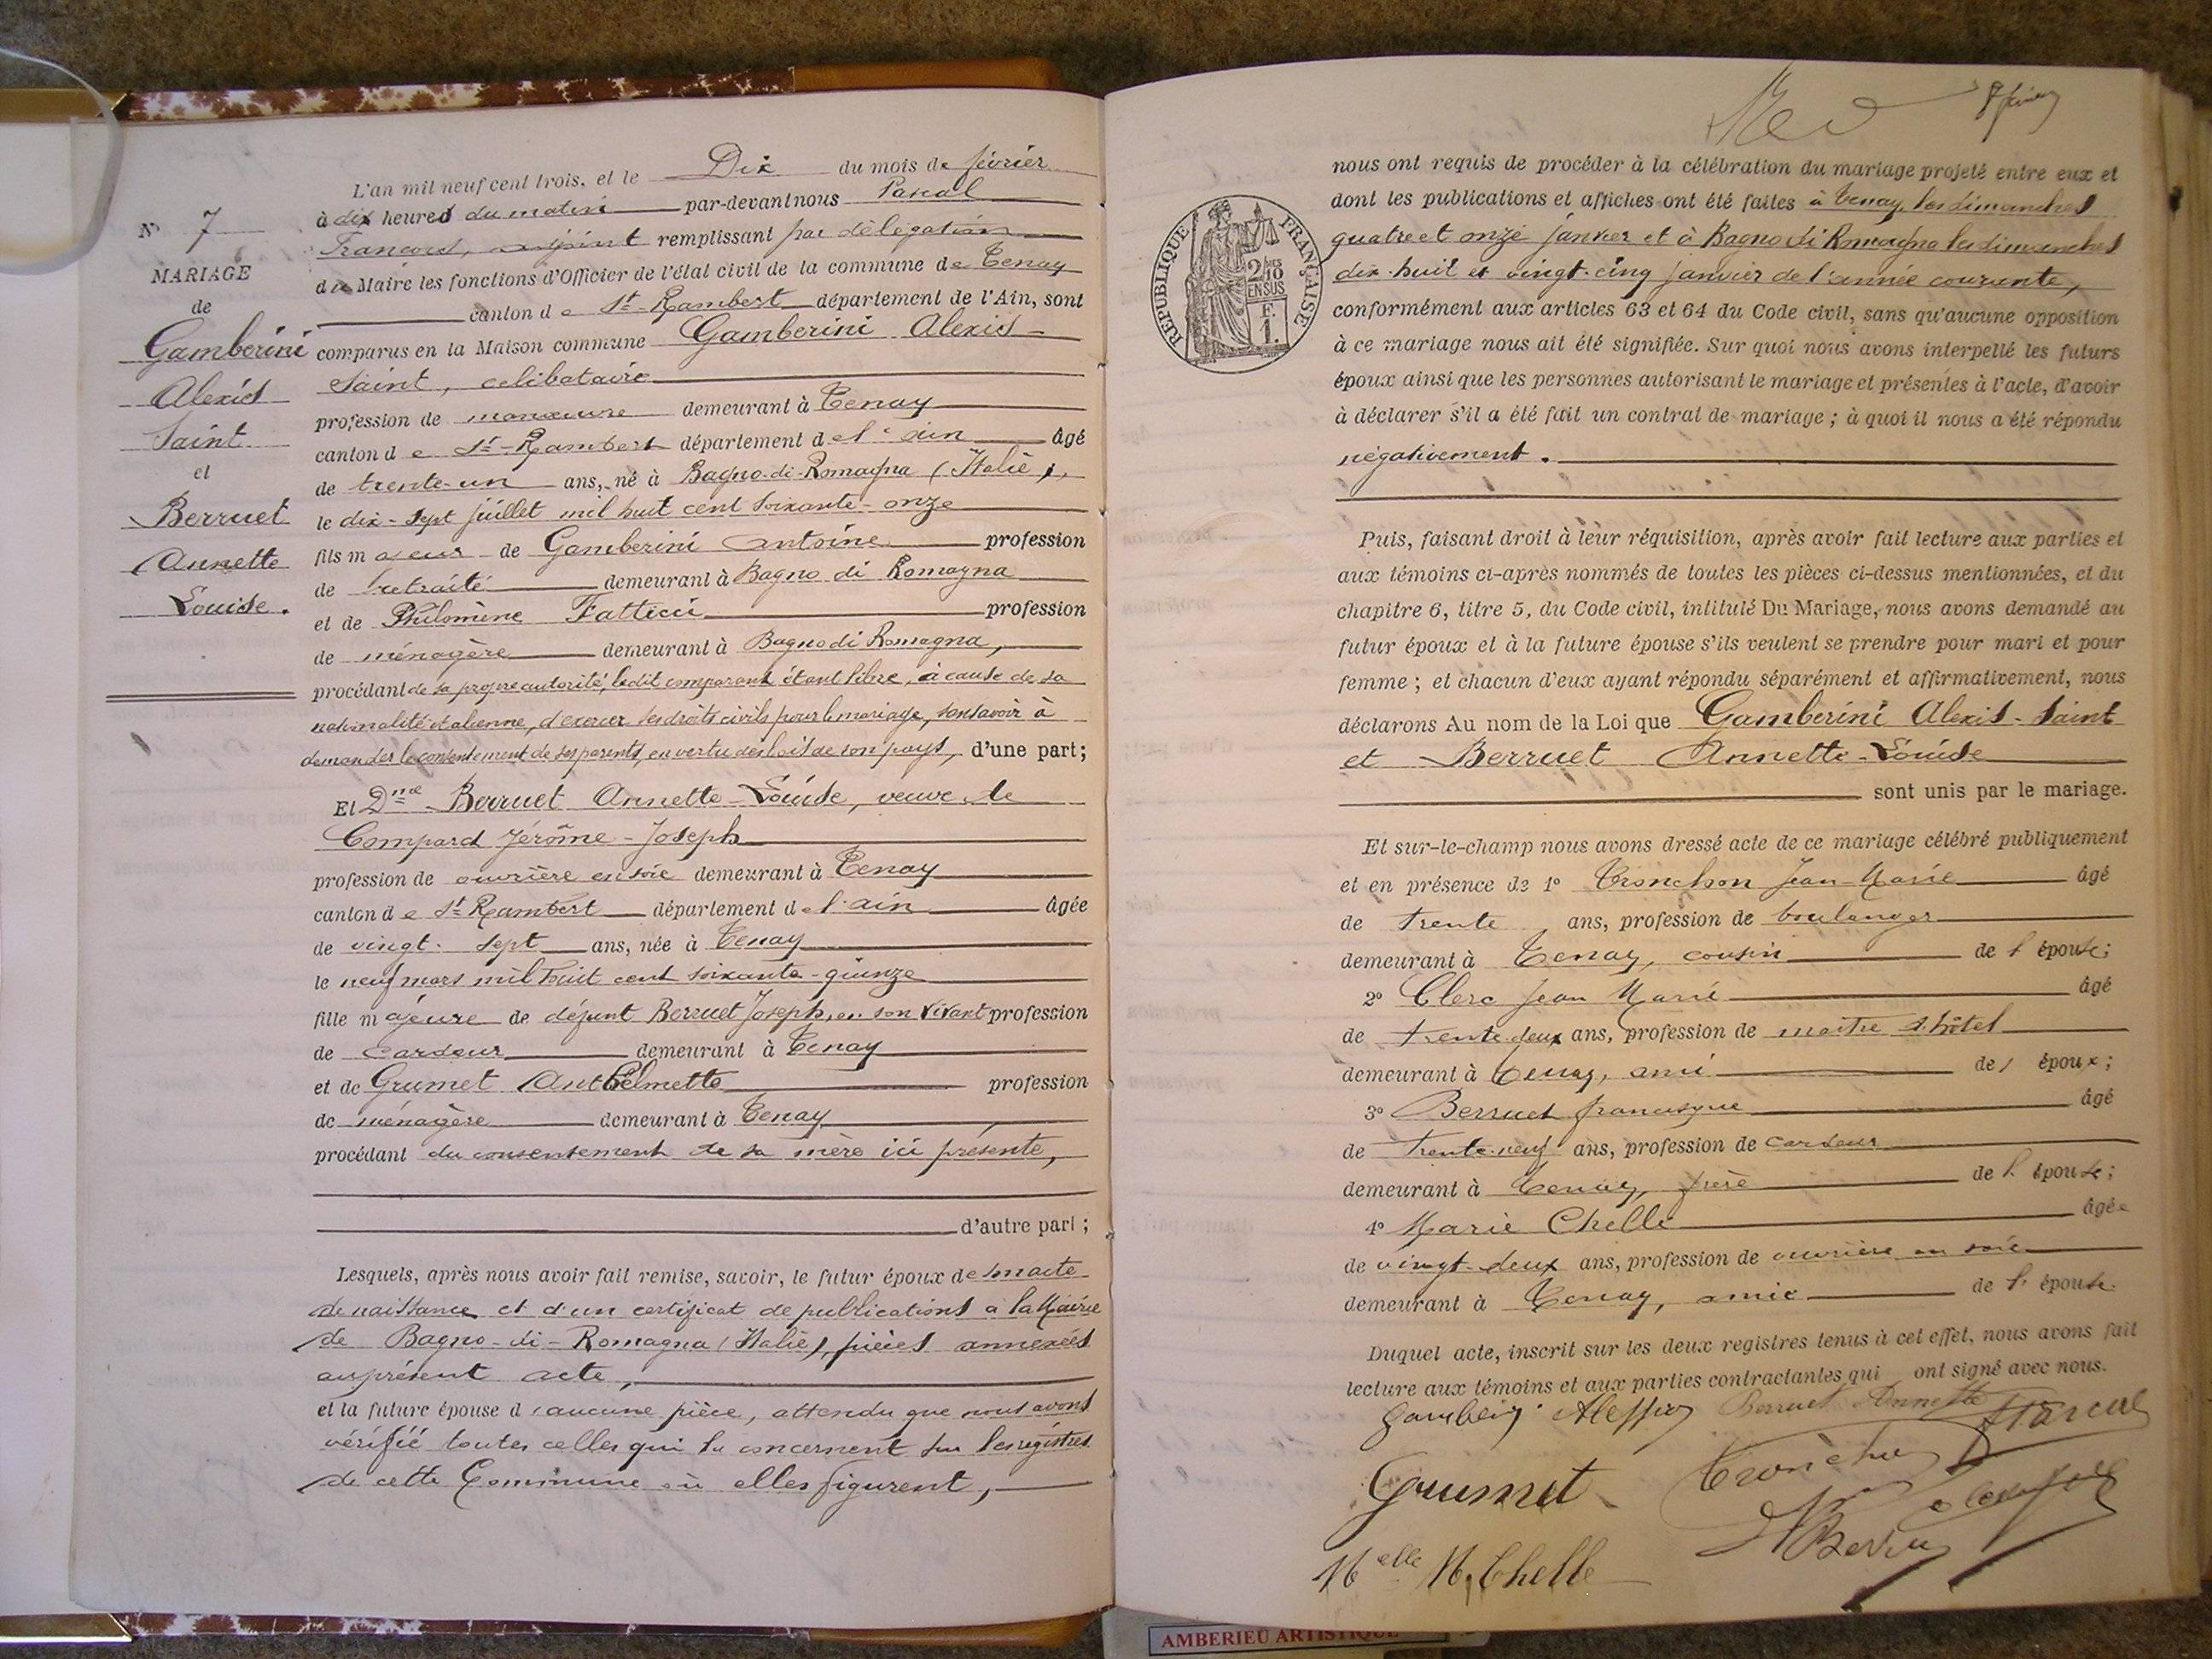 L'an mil neuf cent trois, et le Dix du mois de février
à dix heures du matin par-devant nous Pascal
François, adjoint remplissant par délégation
du Maire les fonctions d'Officier de l'état civil de la commune de Tenay
canton de St-Rambert département de l'Ain, sont
comparus en la Maison commune Gamberini Alexis
Saint, célibataire
profession de manœuvre demeurant à Tenay
canton de St-Rambert département de l'ain âgé
de trente-un ans, né à Bagno-di-Romagna (Italie),
le dix-sept juillet mil huit cent soixante-onze
fils majeur de Gamberini Antoine profession
de retraité demeurant à Bagno di Romagna
et de Philomène Fatticci profession
de ménagère demeurant à Bagno di Romagna,
procédant de sa propre autorité, ledit comparant étant libre, à cause de sa
nationalité italienne, d'exercer ses droits civils pour le mariage, sans avoir à
demander le consentement de ses parents, en vertu des lois de son pays, d'une part;
Et Dme Berruet Annette-Louise, veuve de
Compard Jérôme-Joseph
profession de ouvrière en soie demeurant à Tenay
canton de St-Rambert département de l'ain âgée
de vingt-sept ans, née à Tenay
le neuf mars mil huit cent soixante-quinze
fille majeure de défunt Berruet Joseph, en son vivant profession
de cardeur demeurant à Tenay
et de Grumet Anthelmette profession
de ménagère demeurant à Tenay
procédant du consentement de sa mère ici présente,
d'autre part;
Lesquels, après nous avoir fait remise, savoir, le futur époux de son acte
de naissance et d'un certificat de publications à la Mairie
de Bagno-di-Romagna (Italie), pièces annexées
au présent acte,
et la future épouse d'aucune pièce, attendu que nous avons
vérifié toutes celles qui la concernent sur les registres
de cette Commune où elles figurent,
N° 7
MARIAGE
de
Gamberini
Alexis
Saint
et
Berruet
Annette
Louise.
nous ont requis de procéder à la célébration du mariage projeté entre eux et
dont les publications et affiches ont été faites à Tenay, les dimanches
quatre et onze janvier et à Bagno di Romagna les dimanches
dix-huit et vingt-cinq janvier de l'année courante,
conformément aux articles 63 et 64 du Code civil, sans qu'aucune opposition
à ce mariage nous ait été signifiée. Sur quoi nous avons interpellé les futurs
époux ainsi que les personnes autorisant le mariage et présentes à l'acte, d'avoir
à déclarer s'il a été fait un contrat de mariage; à quoi il nous a été répondu
négativement.
RÉPUBLIQUE FRANÇAISE
2/10
EN SUS
F.
1.
Puis, faisant droit à leur réquisition, après avoir fait lecture aux parties et
aux témoins ci-après nommés de toutes les pièces ci-dessus mentionnées, et du
chapitre 6, titre 5, du Code civil, intitulé Du Mariage, nous avons demandé au
futur époux et à la future épouse s'ils veulent se prendre pour mari et pour
femme; et chacun d'eux ayant répondu séparément et affirmativement, nous
déclarons Au nom de la Loi que Gamberini Alexis-Saint
et Berruet Annette-Louise
sont unis par le mariage.
Et sur-le-champ nous avons dressé acte de ce mariage célébré publiquement
et en présence de 1° Tronchon Jean-Marie âgé
de trente ans, profession de boulanger
demeurant à Tenay, cousin de l'épouse;
2° Clerc Jean Marie âgé
de trente-deux ans, profession de maître d'hôtel
demeurant à Tenay, ami de l'époux;
3° Berruet francisque âgé
de trente-neuf ans, profession de cardeur
demeurant à Tenay, frère de l'épouse;
4° Marie Chelle âgée
de vingt-deux ans, profession de ouvrière en soie
demeurant à Tenay, amie de l'épouse.
Duquel acte, inscrit sur les deux registres tenus à cet effet, nous avons fait
lecture aux témoins et aux parties contractantes qui ont signé avec nous.
Berruet Annette
Pascal
Grumet
Melle M. Chelle
AMBERIEU ARTISTIQUE